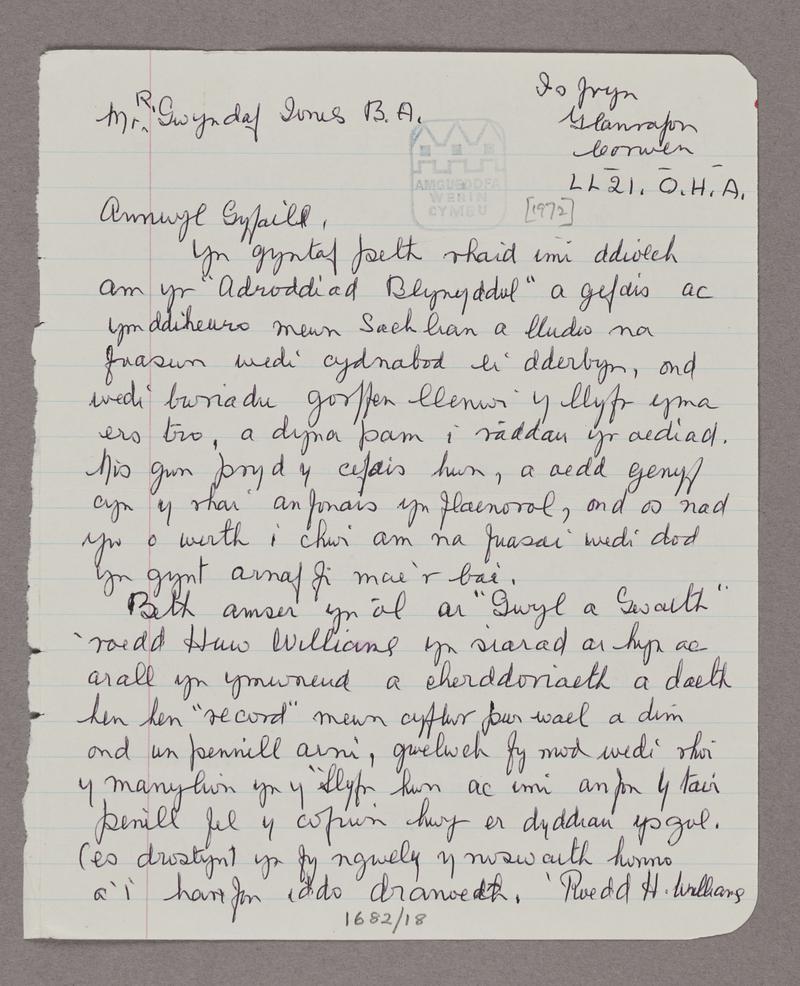 Is fryn
Mr. R. Gwyndaf Jones B.A.
Glanrafon
Corwen
LL21. O.H.A.
AMGUEDDFA
WERIN
CYMRU
[1972]
Annwyl Gyfaill,
Yn gyntaf peth rhaid imi ddiolch
am yr "Adroddiad Blynyddol" a gefais ac
ymddiheuro mewn Sachlian a lludw na
fuaswn wedi cydnabod ei dderbyn, ond
wedi bwriadu gorffen llenwi y llyfr yma
ers tro, a dyna pam i raddau yr oediad.
Nis gwn pryd y cefais hwn, a oedd genyf
cyn y rhai anfonais yn flaenorol, ond os nad
yw o werth i chwi am na fuasai wedi dod
yn gynt arnaf fi mae'r bai.
Beth amser yn ol ar "Gwyl a Gwaith"
'roedd Huw Williams yn siarad ar hyn ac
arall yn ymwneud a cherddoriaeth a daeth
hen hen "record" mewn cyflwr pur wael a dim
ond un pennill arni, gwelwch fy mod wedi rhoi
y manylion yn y llyfr hwn ac imi anfon y tair
penill fel y cofiwn hwy er dyddiau ysgol.
(es drostynt yn fy ngwely y noswaith honno
a'i hanfon iddo dranoeth. 'Roedd H. Williams
1682/18